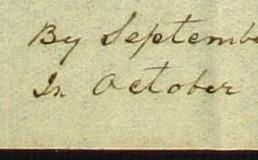 By Septembe
In October